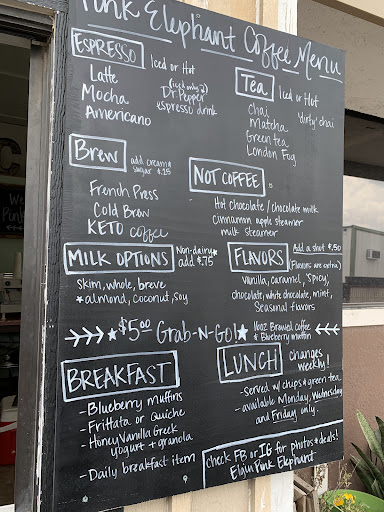 Punk Elephant Coffee Menu
ESPRESSO Iced or Hot
Latte
Mocha
Americano
(iced only)
Dr Pepper
espresso drink
Tea Iced or Hot
Chai 'dirty' chai
Matcha
Green tea
London Fog
Brew add cream &
sugar $.15
French Press
Cold Brew
KETO coffee
NOT COFFEE
Hot chocolate / chocolate milk
cinnamon apple steamer
milk steamer
MILK OPTIONS Non-dairy*
add $.75
skim, whole, breve
*almond, coconut, soy
FLAVORS Add a shot $.50
(Flavors are extra)
vanilla, caramel, 'spicy',
chocolate, white chocolate, mint,
Seasonal flavors
$5.00 Grab-N-Go! 16oz Brewed coffee
& Blueberry muffin
BREAKFAST
- Blueberry muffins
- Frittata or Quiche
- Honey Vanilla Greek
yogurt + granola
- Daily breakfast item
LUNCH changes
weekly!
- served w/ chips & green tea
- available Monday, Wednesday
and Friday only.
check FB or IG for photos & deals!
Elgin Punk Elephant